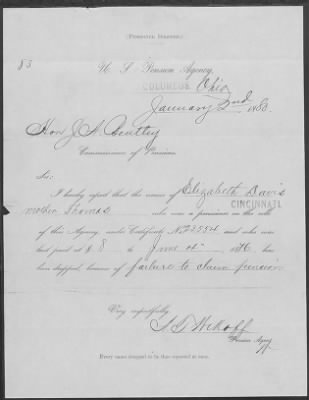 (PENSIONER DROPPED.)
83
U. S. Pension Agency,
COLUMBUS Ohio
January 2nd 1880.
Hon J A Bentley
Commissioner of Pensions.
Sir:
I hereby report that the name of Elizabeth Davis
CINCINNATI
mother Thomas who was a pensioner on the rolls
of this Agency, under Certificate No. and who was
last paid at $ 8 to June 4th 1876 has
been dropped, because of failure to claim pension
Very respectfully,
Pension Agent
Every name dropped to be thus reported at once.